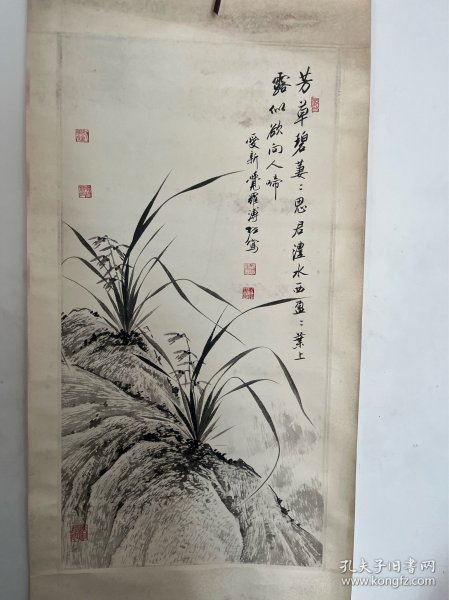 芳草碧萋〻思君澧水西盈〻葉上
露似欲向人啼
愛新覺羅溥松寫
孔夫子旧书网
www.kongfz.com